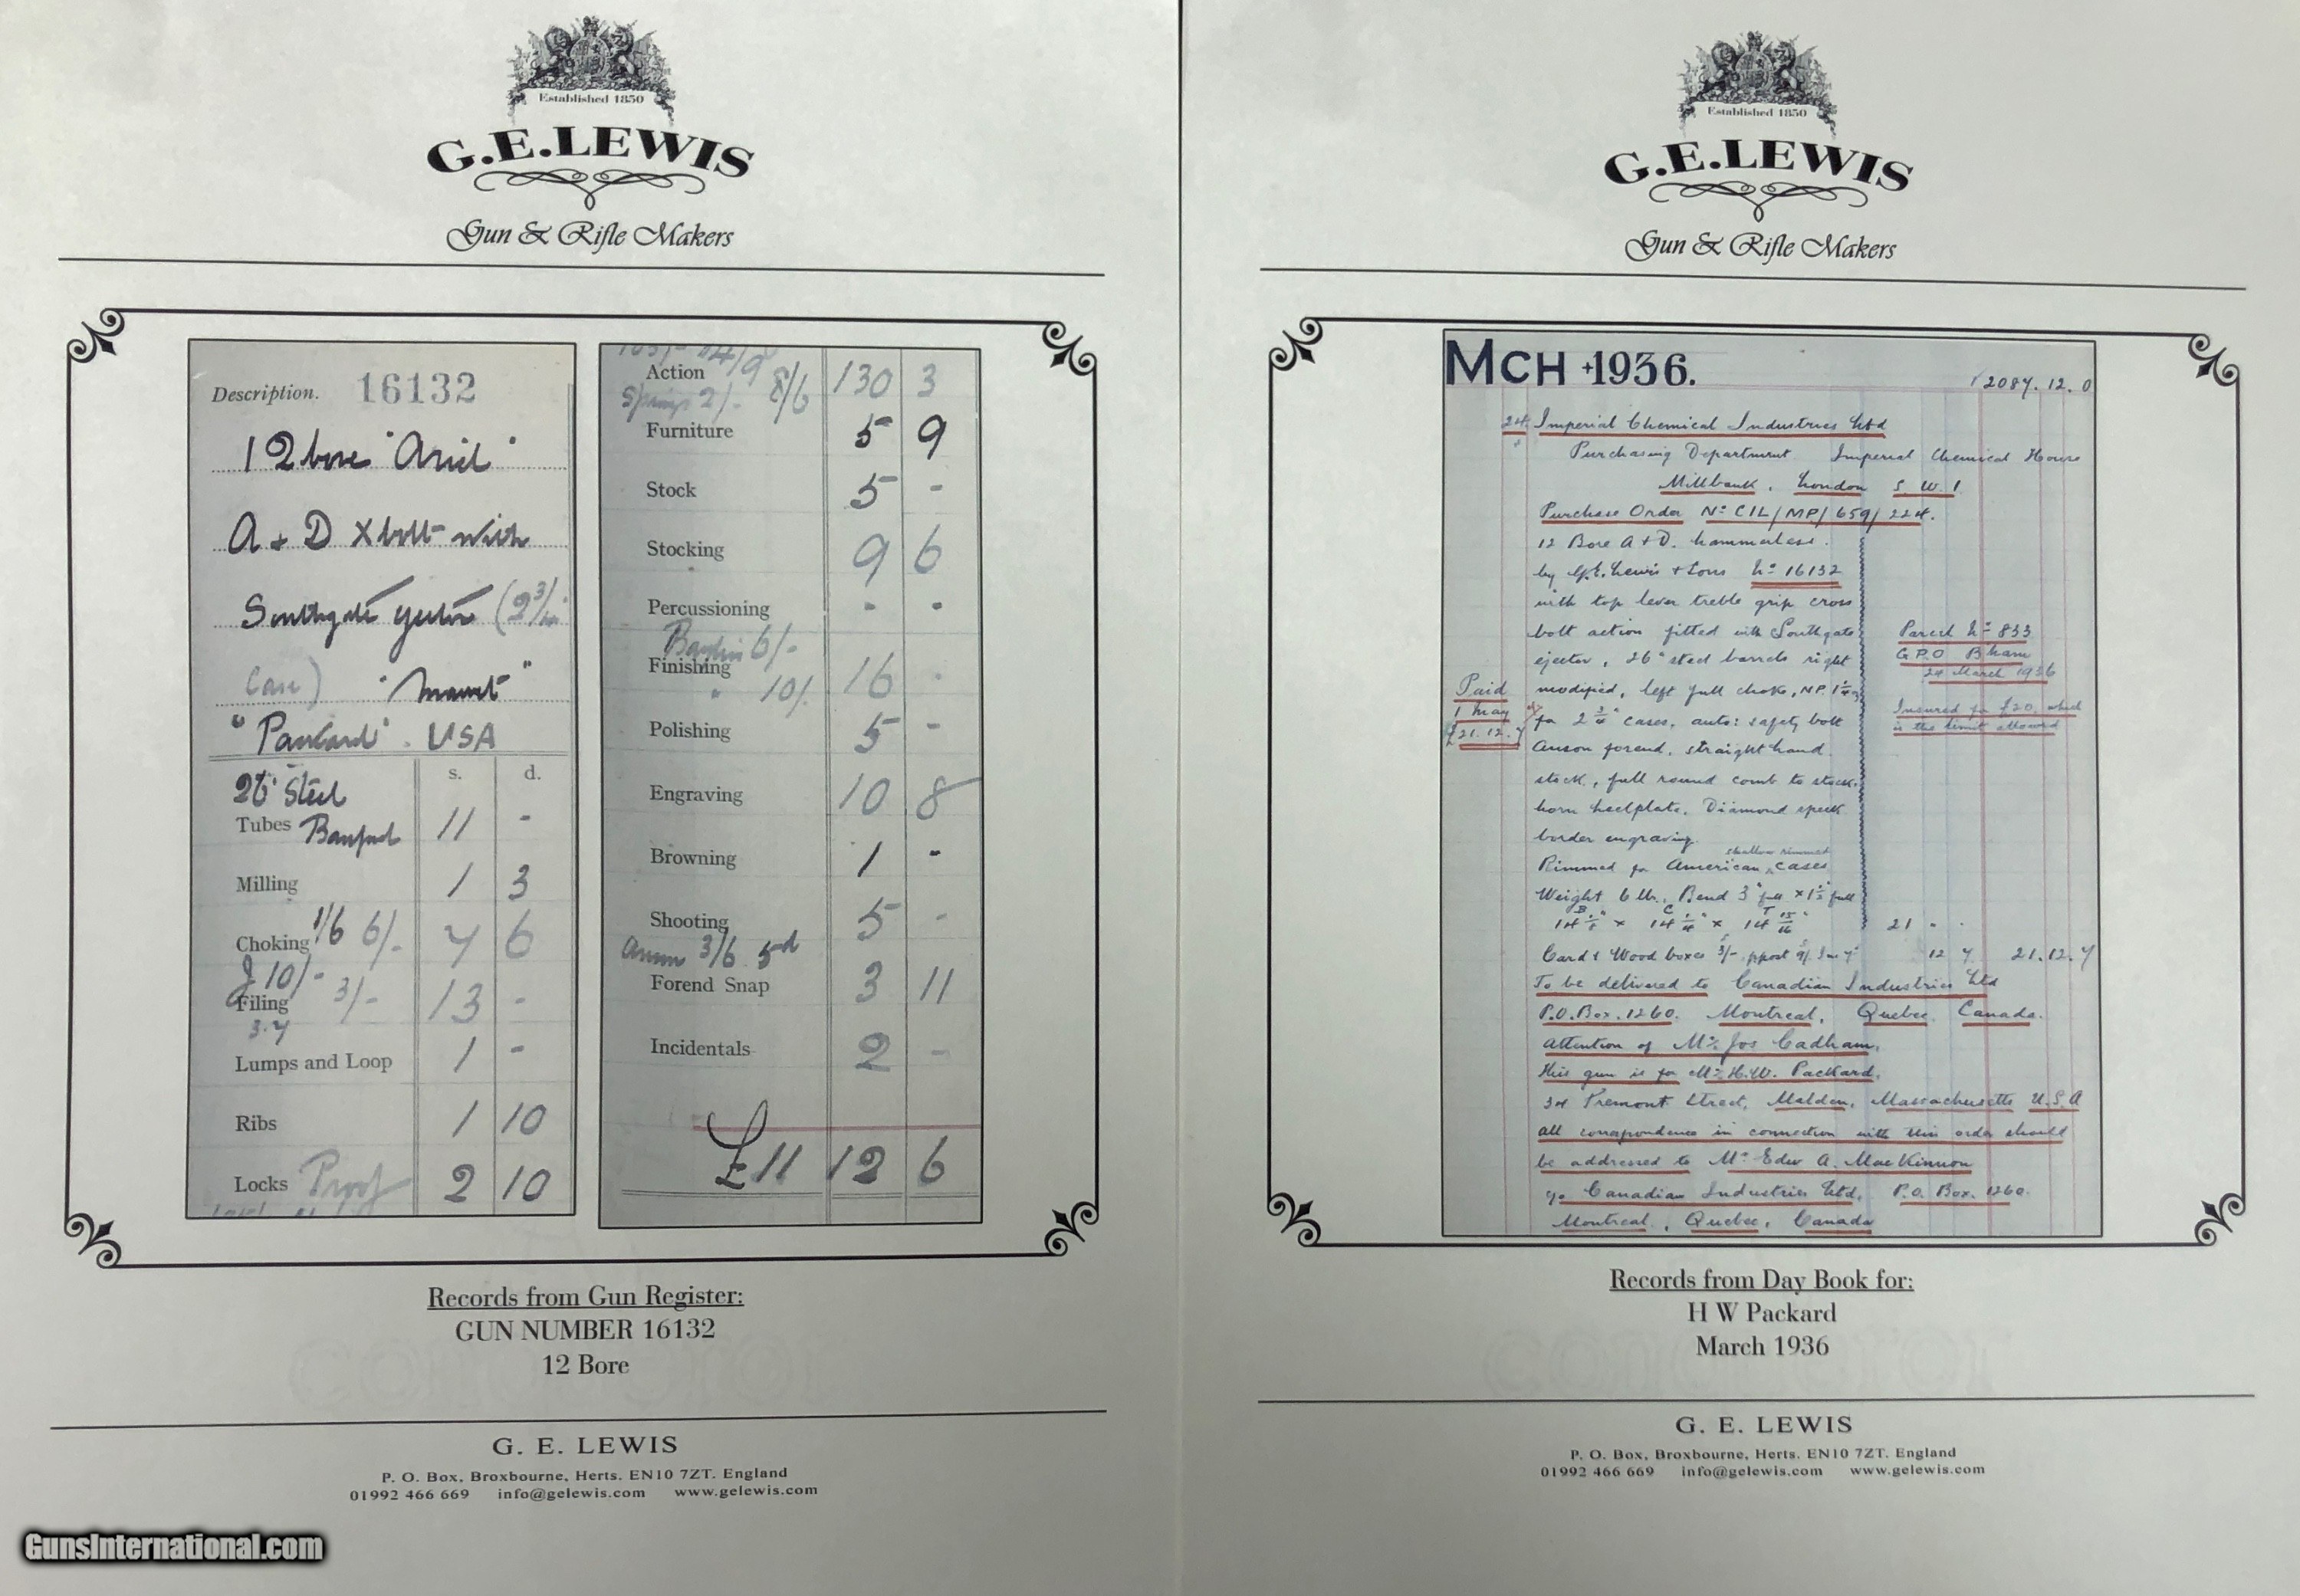 Established 1850
G.E.LEWIS
Gun & Rifle Makers
Description. 16132
12 bore "Ariel"
A & D X bolt with
Southgate ejector (2 3/4 in
Case)
"Packard". USA
s. d.
26" Steel
Tubes 11 -
Milling 1 3
Choking 1/6 6/- 7 6
J 10/-
Filing 3/- 13 -
3.7
Lumps and Loop 1 -
Ribs 1 10
Locks Proof 2 10
Action 8/6 130 3
Springs 2/-
Furniture 5 9
Stock 5 -
Stocking 9 6
Percussioning - -
6/-
Finishing 16 -
" 10/.
Polishing 5 -
Engraving 10 8
Browning 1 -
Shooting 5 -
Anson 3/6 5d
Forend Snap 3 11
Incidentals 2 -
£11 12 6
Records from Gun Register:
GUN NUMBER 16132
12 Bore
G. E. LEWIS
P. O. Box, Broxbourne, Herts. EN10 7ZT. England
01992 466 669 info@gelewis.com www.gelewis.com
Established 1850
G.E.LEWIS
Gun & Rifle Makers
MCH 1936.
2087.12.0
24 Imperial Chemical Industries Ltd
Purchasing Department Imperial Chemical House
Millbank, London S.W.1
Purchase Order No CIL/MP/659/224.
12 Bore A & D. hammerless.
by G.E. Lewis & Sons No 16132
with top lever treble grip cross
bolt action fitted with Southgate
ejector, 26" steel barrels right
modified, left full choke, NP. 1 1/4 oz
for 2 3/4" cases, auto: safety bolt
Anson forend, straight hand
stock, full round comb to stock,
horn heelplate. Diamond speck
border engraving.
shallow rimmed
Rimmed for American cases
Weight 6 lb., Bend 3" full x 1 1/2" full
B C T
14 1/2" x 14 1/4" x 14 15/16" 21 " .
Card & Wood boxes 3/- ppost 9/- 12 7 21.12.7
Paid
1 May
£21.12.7
Parcel No 833
G.P.O B'ham
24 March 1936
Insured for £20. which
is the limit allowed
To be delivered to Canadian Industries Ltd
P.O. Box. 1260. Montreal, Quebec, Canada.
Attention of Mr. Jos Cadham,
this gun is for Mr. H.W. Packard,
34 Tremont Street, Malden, Massachusetts U.S.A
all correspondence in connection with this order should
be addressed to Mr Edw A. MacKinnon
c/o Canadian Industries Ltd, P.O. Box. 1260.
Montreal, Quebec, Canada
Records from Day Book for:
H W Packard
March 1936
G. E. LEWIS
P. O. Box, Broxbourne, Herts. EN10 7ZT. England
01992 466 669 info@gelewis.com www.gelewis.com
GunsInternational.com